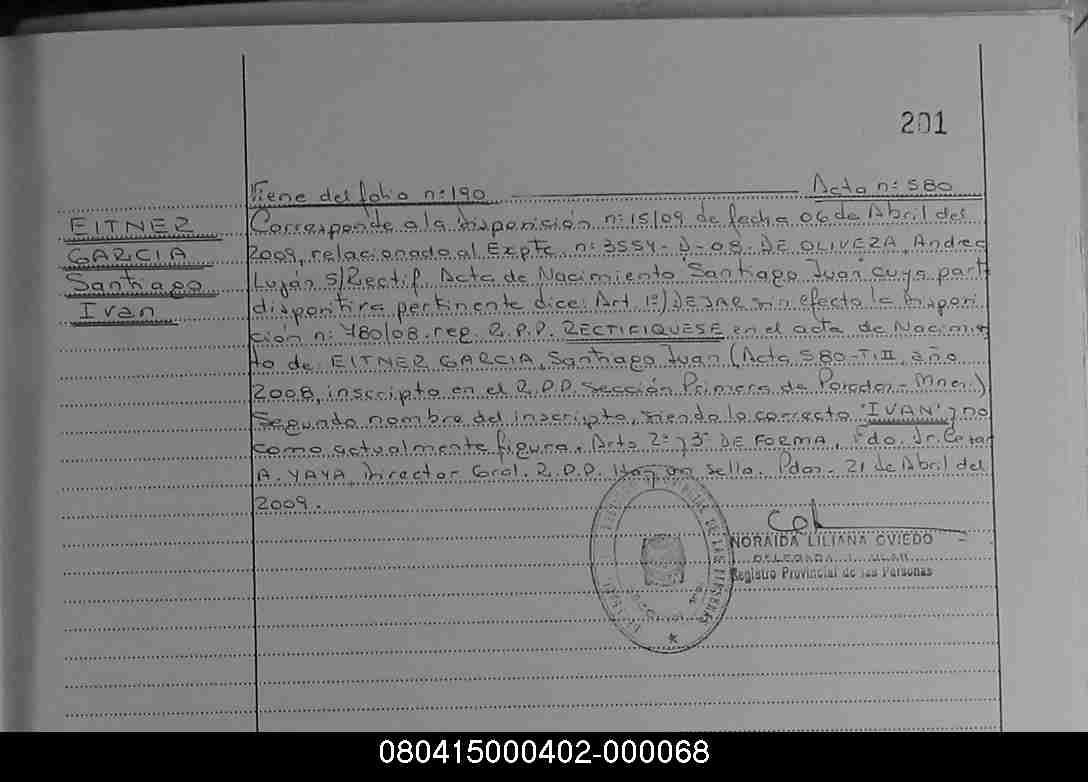 201
Viene del folio n: 190 Acta n: 580
EITNER
GARCIA
Santiago
Ivan
Corresponde a la Disposición n: 15/09 de fecha 06 de Abril del
2009, relacionado al Expte n: 3554-D-08- DE OLIVERA, Andrea
Luján s/Rectif. Acta de Nacimiento Santiago Juan cuya part
dispositiva pertinente dice: Art 1º) DEJAR sin efecto la Disposi
ción n: 480/08. reg. R.P.P. RECTIFIQUESE en el acta de Nacimie
to de: EITNER GARCIA, Santiago Juan (Acta 580-T:II año
2008, inscripto en el R.P.P. Sección Primera de Posadas-Mnes)
Segundo nombre del inscripto, siendo lo correcto "IVAN" y no
como actualmente figura. Arts 2º y 3º DE FORMA, Fdo. Dr. Cesar
A. YAYA, Director Gral. R.P.P. Hay un sello. Pdas. 21 de Abril del
2009.
NORAIDA LILIANA OVIEDO
DELEGADA
Registro Provincial de las Personas
DE LAS PERSONAS
080415000402-000068